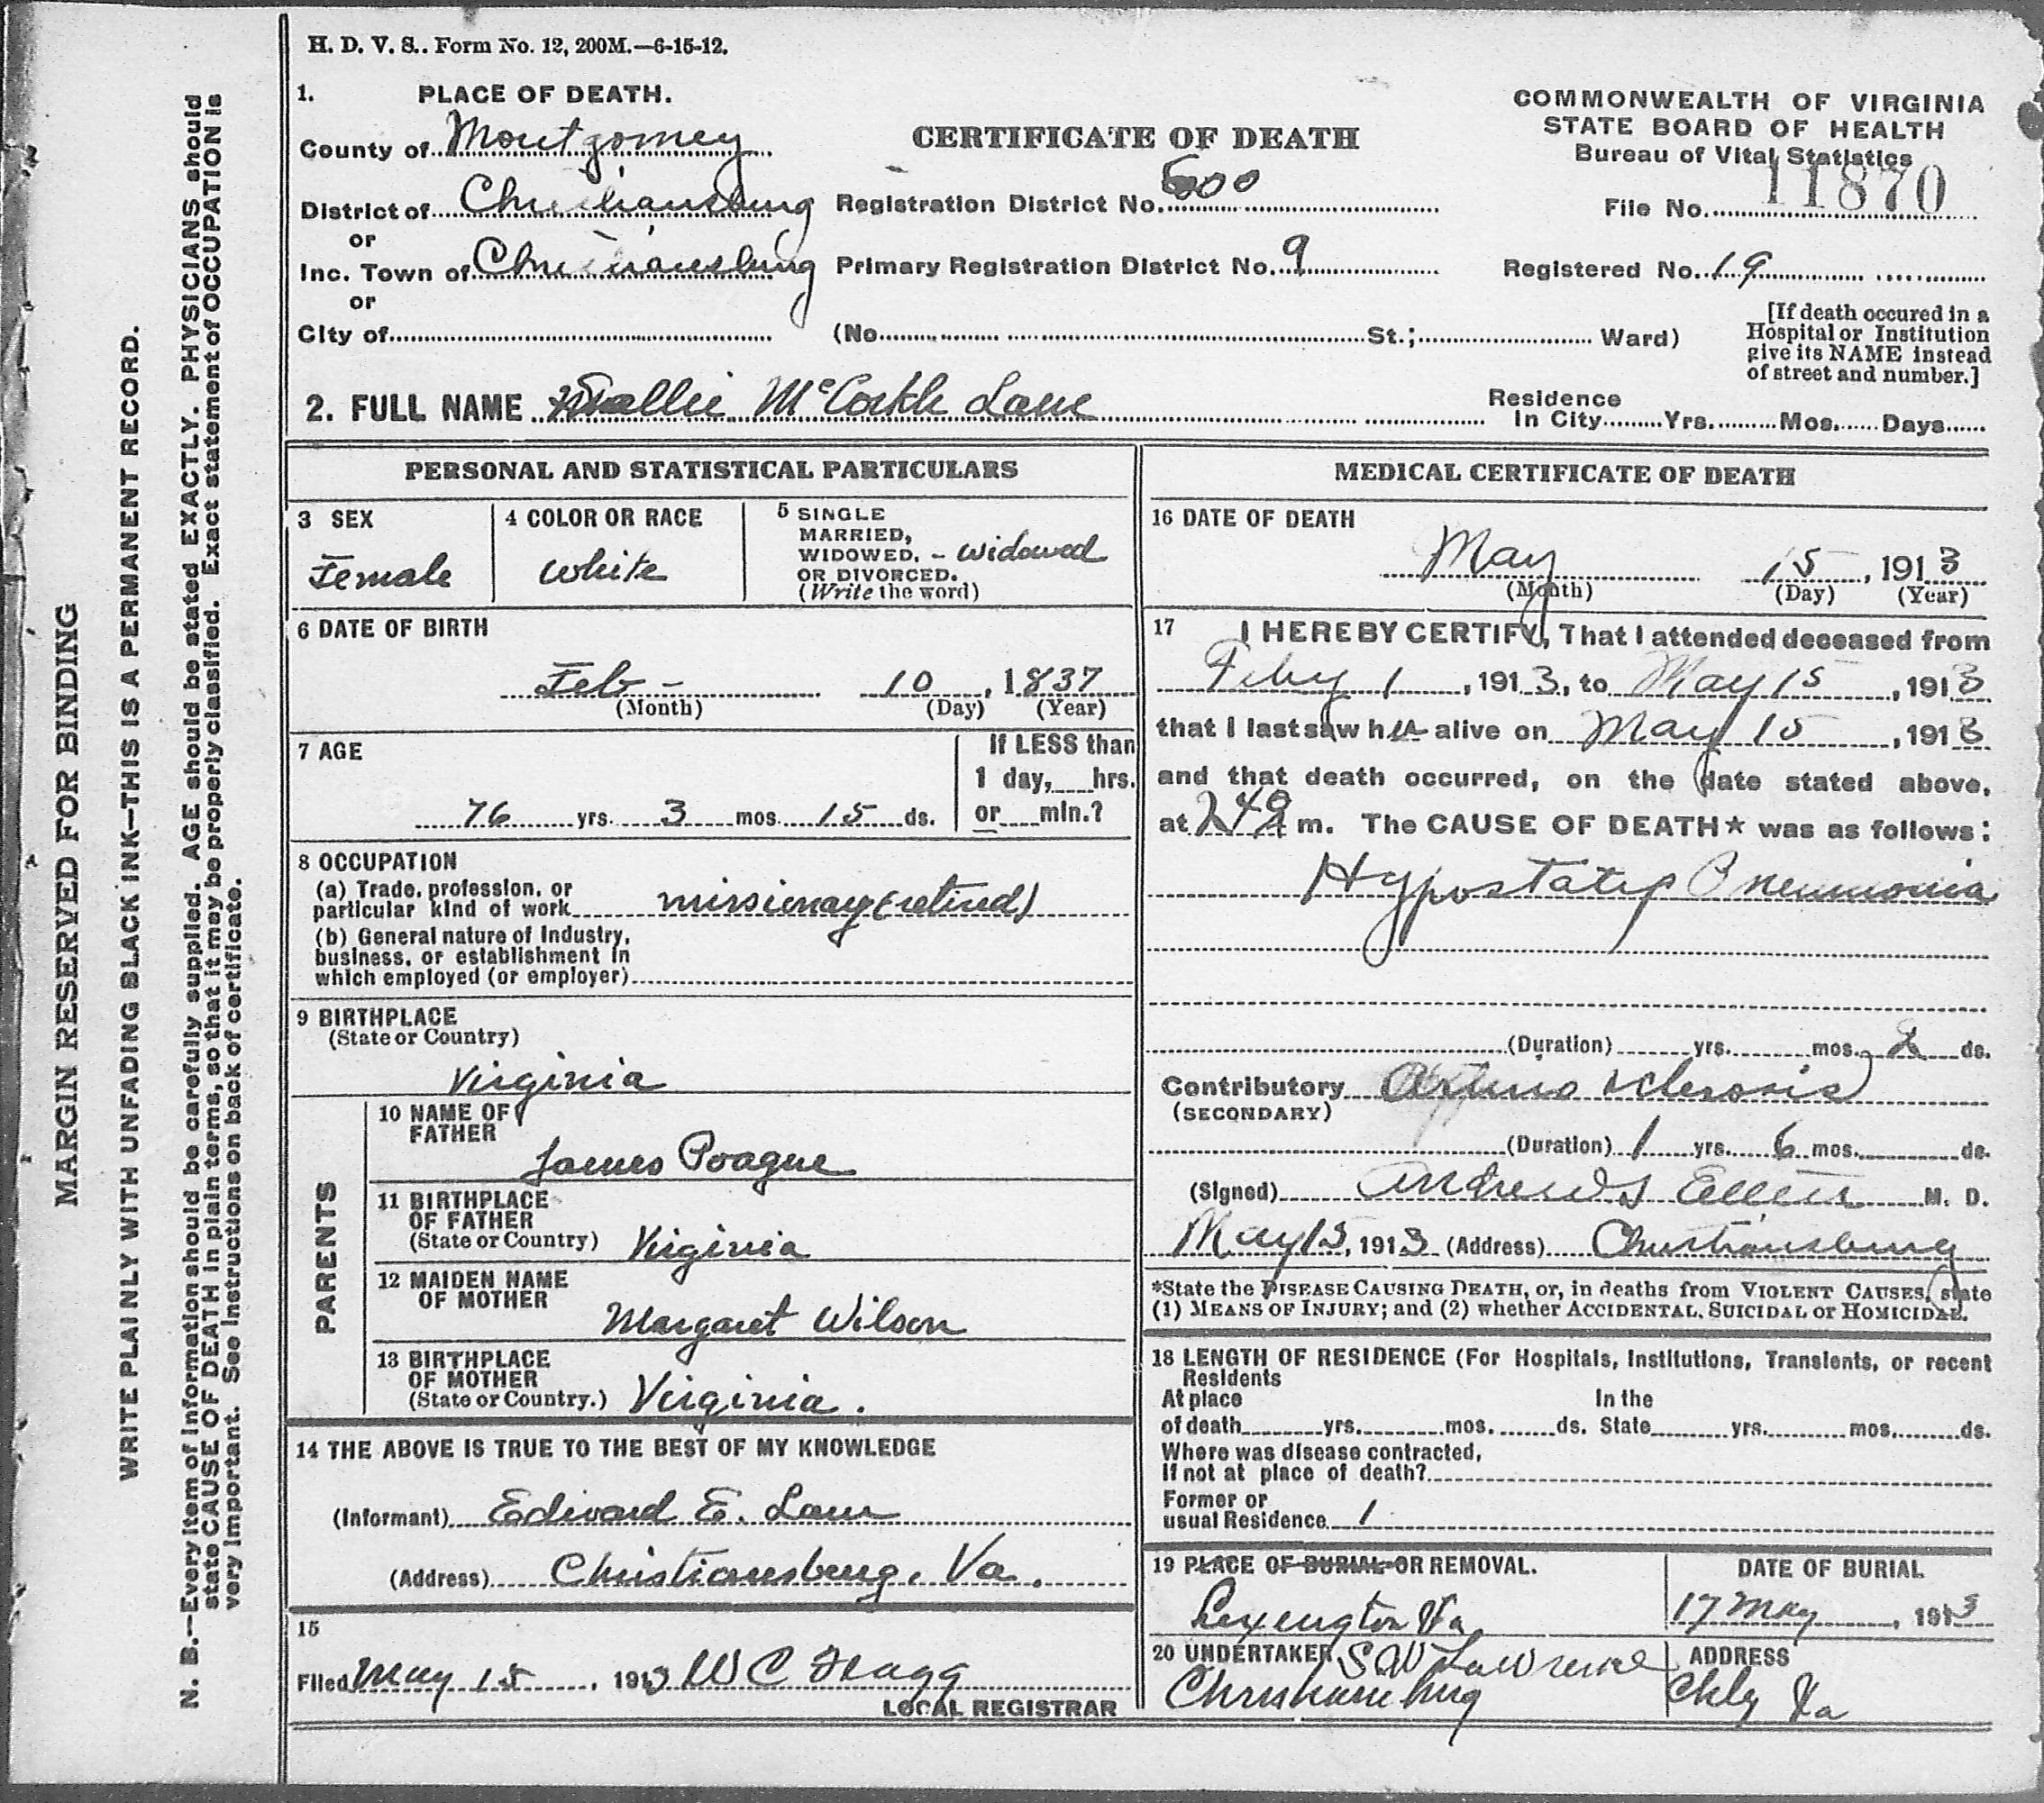 H. D. V. S.. Form No. 12, 200M.—6-15-12.
1. PLACE OF DEATH.
County of Montgomery
District of Christiansburg
or
Inc. Town of Christiansburg
or
City of
CERTIFICATE OF DEATH
Registration District No. 600
Primary Registration District No. 9
(No. St.; Ward)
COMMONWEALTH OF VIRGINIA
STATE BOARD OF HEALTH
Bureau of Vital Statistics
File No. 11870
Registered No. 19
[If death occured in a
Hospital or Institution
give its NAME instead
of street and number.]
2. FULL NAME McCorkle Lane
Residence
In City Yrs. Mos. Days
PERSONAL AND STATISTICAL PARTICULARS
3 SEX
Female
4 COLOR OR RACE
white
5 SINGLE
MARRIED,
WIDOWED, - widowed
OR DIVORCED.
(Write the word)
6 DATE OF BIRTH
Feb - 10, 1837
(Month) (Day) (Year)
7 AGE
76 yrs. 3 mos 15 ds.
If LESS than
1 day, hrs.
or min.?
8 OCCUPATION
(a) Trade, profession, or
particular kind of work missionay (retired)
(b) General nature of Industry,
business, or establishment in
which employed (or employer)
9 BIRTHPLACE
(State or Country)
Virginia
PARENTS
10 NAME OF
FATHER
James Poague
11 BIRTHPLACE
OF FATHER
(State or Country) Virginia
12 MAIDEN NAME
OF MOTHER
Margaret Wilson
13 BIRTHPLACE
OF MOTHER
(State or Country.) Virginia.
14 THE ABOVE IS TRUE TO THE BEST OF MY KNOWLEDGE
(Informant) Edward E. Lane
(Address) Christiansburg, Va.
15
Filed May 15, 1913 W C Flagg
LOCAL REGISTRAR
MEDICAL CERTIFICATE OF DEATH
16 DATE OF DEATH
May 15, 1913
(Month) (Day) (Year)
17 I HEREBY CERTIFY, That I attended deceased from
Feby 1, 1913, to May 15, 1913
that I last saw her alive on May 15, 1913
and that death occurred, on the date stated above,
at m. The CAUSE OF DEATH★ was as follows:
Hypostatic Pneumonia
(Duration) yrs. mos. 2 ds.
Contributory Arterio sclerosis
(SECONDARY)
(Duration) 1 yrs. 6 mos. ds.
(Signed) M. D.
May 15, 1913 (Address) Christiansburg
*State the DISEASE CAUSING DEATH, or, in deaths from VIOLENT CAUSES, state
(1) MEANS OF INJURY; and (2) whether ACCIDENTAL, SUICIDAL or HOMICIDAL.
18 LENGTH OF RESIDENCE (For Hospitals, Institutions, Transients, or recent
Residents
At place In the
of death yrs. mos. ds. State yrs. mos. ds.
Where was disease contracted,
If not at place of death?
Former or
usual Residence
19 PLACE OF BURIAL OR REMOVAL.
Lexington Va
DATE OF BURIAL
17 May, 1913
20 UNDERTAKER S W Lawrence
Christiansburg
ADDRESS
Chbg Va
MARGIN RESERVED FOR BINDING
WRITE PLAINLY WITH UNFADING BLACK INK—THIS IS A PERMANENT RECORD.
N. B.—Every item of information should be carefully supplied. AGE should be stated EXACTLY. PHYSICIANS should
state CAUSE OF DEATH in plain terms, so that it may be properly classified. Exact statement of OCCUPATION is
very important. See instructions on back of certificate.